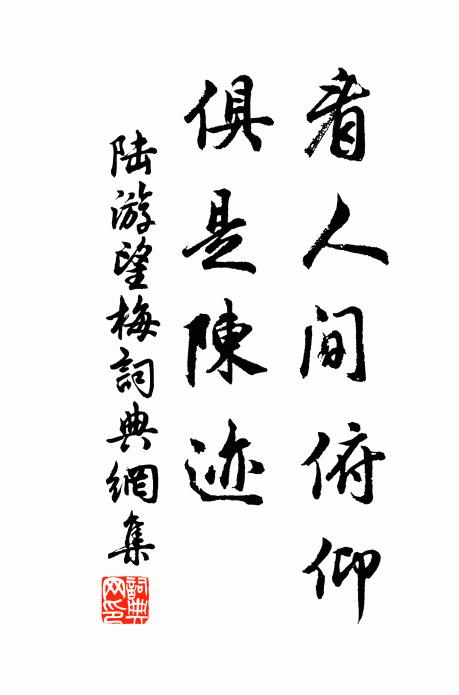 看人間俯仰
俱是陳迹
陸游望梅詞典網集
詞典网印